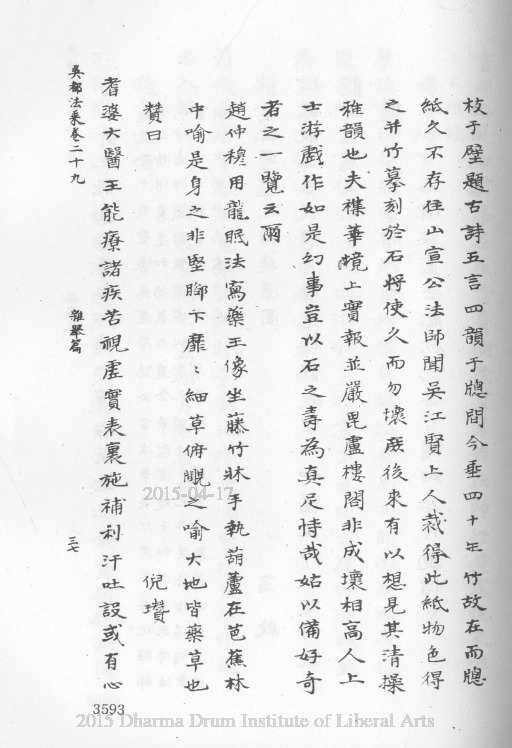 枝于壁題古詩五言四韻于牕間今垂四十年竹故在而牕
紙久不存住山宣公法師聞吳江賢上人裁得此紙物色得
之并竹摹刻於石將使久而勿壞庶後來有以想見其清操
雅韻也夫襍華境上實報並嚴毘盧樓閣非成壞相高人上
士游戲作如是幻事豈以石之壽為真足恃哉姑以備好奇
者之一覽云爾
趙仲穆用龍眠法寫藥王像坐藤竹牀手執葫蘆在芭蕉林
中喻是身之非堅脚下靡〻細草俯覷之喻大地皆藥草也
贊曰 倪瓚
耆婆大醫王能療諸疾苦視虛實表裏施補利汗吐設或有心
吳都法乘卷二十九 雜舉篇 三七
3593
2015-04-17
2015 Dharma Drum Institute of Liberal Arts